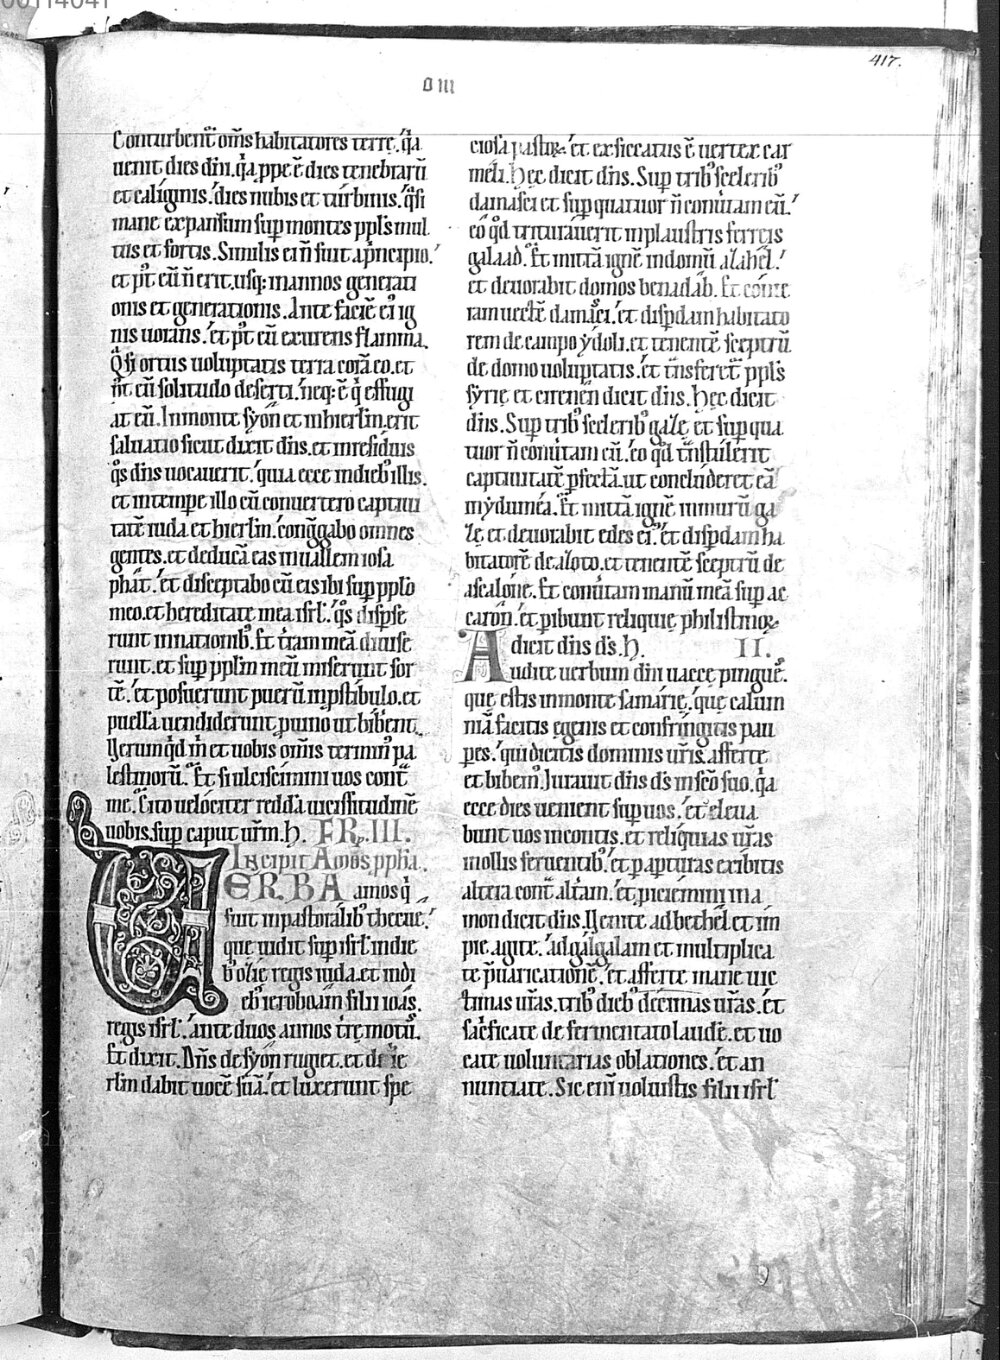 00114041
417.
O III
Conturbent͛ om̅s habitatores terrę. q̇a
uenit dies dn̅i. q̇a ꝓpe ē dies tenebrarū
et caliginis. dies nubis et turbinis. q̇si
mane expansum sup̱ montes ppl̅s mul
tus et fortis. Similis ei n̅ fuit a p̱ncipio.
et p͛t eū n̅ erit. usq; in annos generati
onis et generationis. Ante faciē ei᷒ ig
nis uorans. et p͛t eū exurens flamma.
Q̇si ortus uoluptatis terra corā eo. et
p͛t eū solitudo deserti. neq; ē q̇ effugi
at eū. In monte syon et in hierl̅m. erit
saluatio sicut dixit dn̅s. et in residuis
q᷒s dn̅s uocauerit. quia ecce in dieb᷒ illis.
et in tempe illo cū conuertero captiui
tatē iuda. et hierl̅m. con̅ggabo omnes
gentes. et deducā eas in uallem iosa
phat. et disceptabo cū eis ibi sup̱ ppl̅o
meo. et hereditate mea isrl̅. q᷒s disp̱se
runt in nationib᷒. Et t̅ram meā diuise
runt. et sup̱ ppl̅m meū miserunt sor
tē. et posuerunt puerū in p̱stibulo. et
puella uendiderunt p̱ uino ut bibent͛.
Uerum qd̅ m̅ et uobis om̅is termin᷒ pa
lestinorū. Et si ulciscimini uos cont̅
me. Cito uelociter reddā uicissitudinē
uobis. sup̱ caput ur̅m. h. FR. III.
Incipit Amos. ppha.
UERBA amos q̇
fuit in pastoralib᷒ thecue.
que uidit sup̱ isrl̅. in die
b᷒ ozie regis iuda. et in di
eb᷒ ieroboam filii ioas.
regis isrl̅. ante duos annos t̅remotū.
Et dixit. Dn̅s de syon rugiet. et de ie
rl̅m dabit uocē suā. et luxerunt spe
ciosa pastorꝝ. et exsiccatus ē uertex car
meli. Hęc dicit dn̅s. Sup̱ trib᷒ scelerib᷒
damasci et sup̱ quatuor n̅ conu̅tam eū.
eo qd̅ triturauerit in plaustris ferreis
galaad. Et mittā ignē in domū azahel.
et deuorabit domos benadab. Et conte
ram uectē damasci. et disp̱dam habitato
rem de campo ydoli. et tenentē sceptrū
de domo uoluptatis. et t̅nsferet͛ ppl̅s
syrię et cirenen dicit dn̅s. Hęc dicit
dn̅s. Sup̱ trib᷒ scelerib᷒ gazę. et sup̱ qua
tuor n̅ conu̅tam eū. eo qd̅ t̅nstulerit
captiuitatē p̱fectā. ut concluderet eā
in ydumea. Et mittā ignē in murū ga
zę. et deuorabit edes ei᷒. et disp̱dam ha
bitatorē de azoto. et tenentē sceptrū de
ascalone. Et conu̅tam manū meā sup̱ ac
caron. et p̱ibunt reliquię philistinoꝝ
dicit dn̅s ds̅. h. II.
Audite uerbum dn̅i uaccę pingue᷒.
quę estis in monte samarię. quę calum
niā facitis egenis et confringitis pau
p̱es. qui dicitis dominis ur̅is. afferte
et bibem᷒. Iurauit dn̅s ds̅ in sc̅o suo. q̇a
ecce dies uenient sup̱ uos. et eleua
bunt uos in contis. et reliquias ur̅as
in ollis feruentib᷒. et p̱ ap̱turas exibitis
altera cont̅ alt̅am. et p̱iciemini in a
mon dicit dn̅s. Uenite ad bethel. et im
pie agite. ad galgalam et multiplica
te p̱uaricationē. et afferte mane uic
timas ur̅as. trib᷒ dieb᷒ decimas ur̅as. et
sac̅ficate de fermentato laudē. et uo
cate uoluntarias oblationes. et an
nuntiate. Sic eni̅ uoluistis filii isrl̅